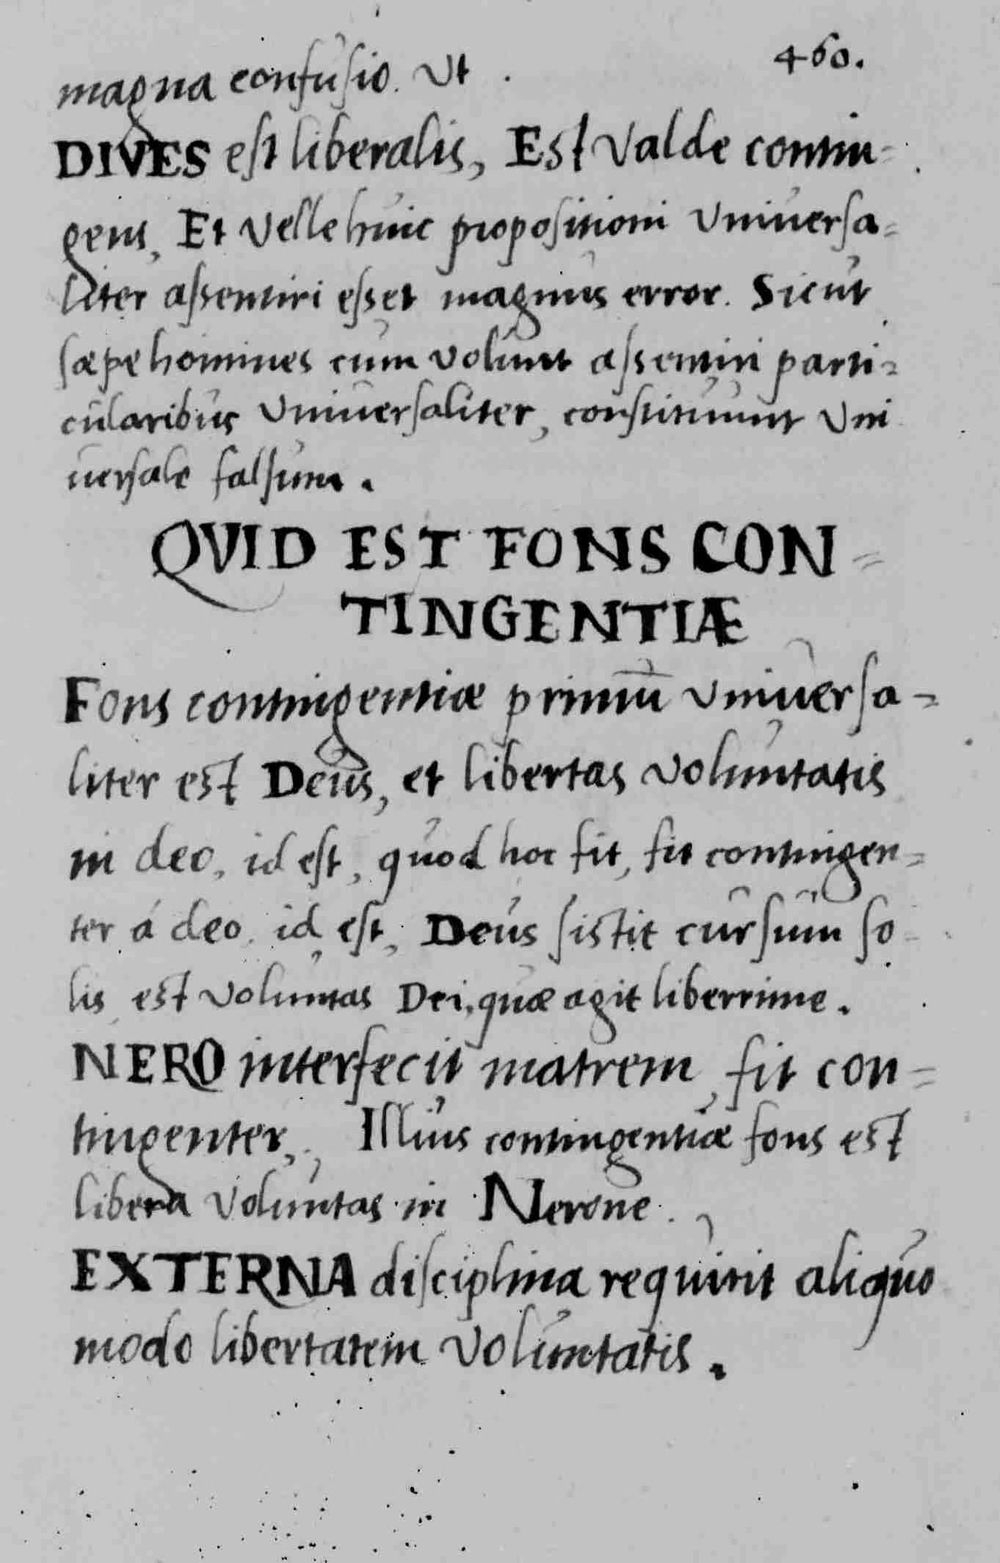 460.
magna confusio. Ut
DIVES est liberalis, Est valde contin=
gens, Et velle huic propositioni Universa=
liter assentiri esset magnus error. Sicut
sæpe homines cum volunt assentiri parti=
cularibus Universaliter, constituunt Uni
uersale falsum.
QVID EST FONS CON=
TINGENTIÆ
Fons contingentiæ primū Universa=
liter est Deus, et libertas voluntatis
in deo, id est, quod hoc fit, fit contingen=
ter á deo, id est, Deus sistit cursum so
lis est voluntas Dei, quæ agit liberrime.
NERO interfecit matrem, fit con=
tingenter, Illius contingentiæ fons est
libera voluntas in Nerone.
EXTERNA disciplina requirit aliquo
modo libertatem voluntatis.